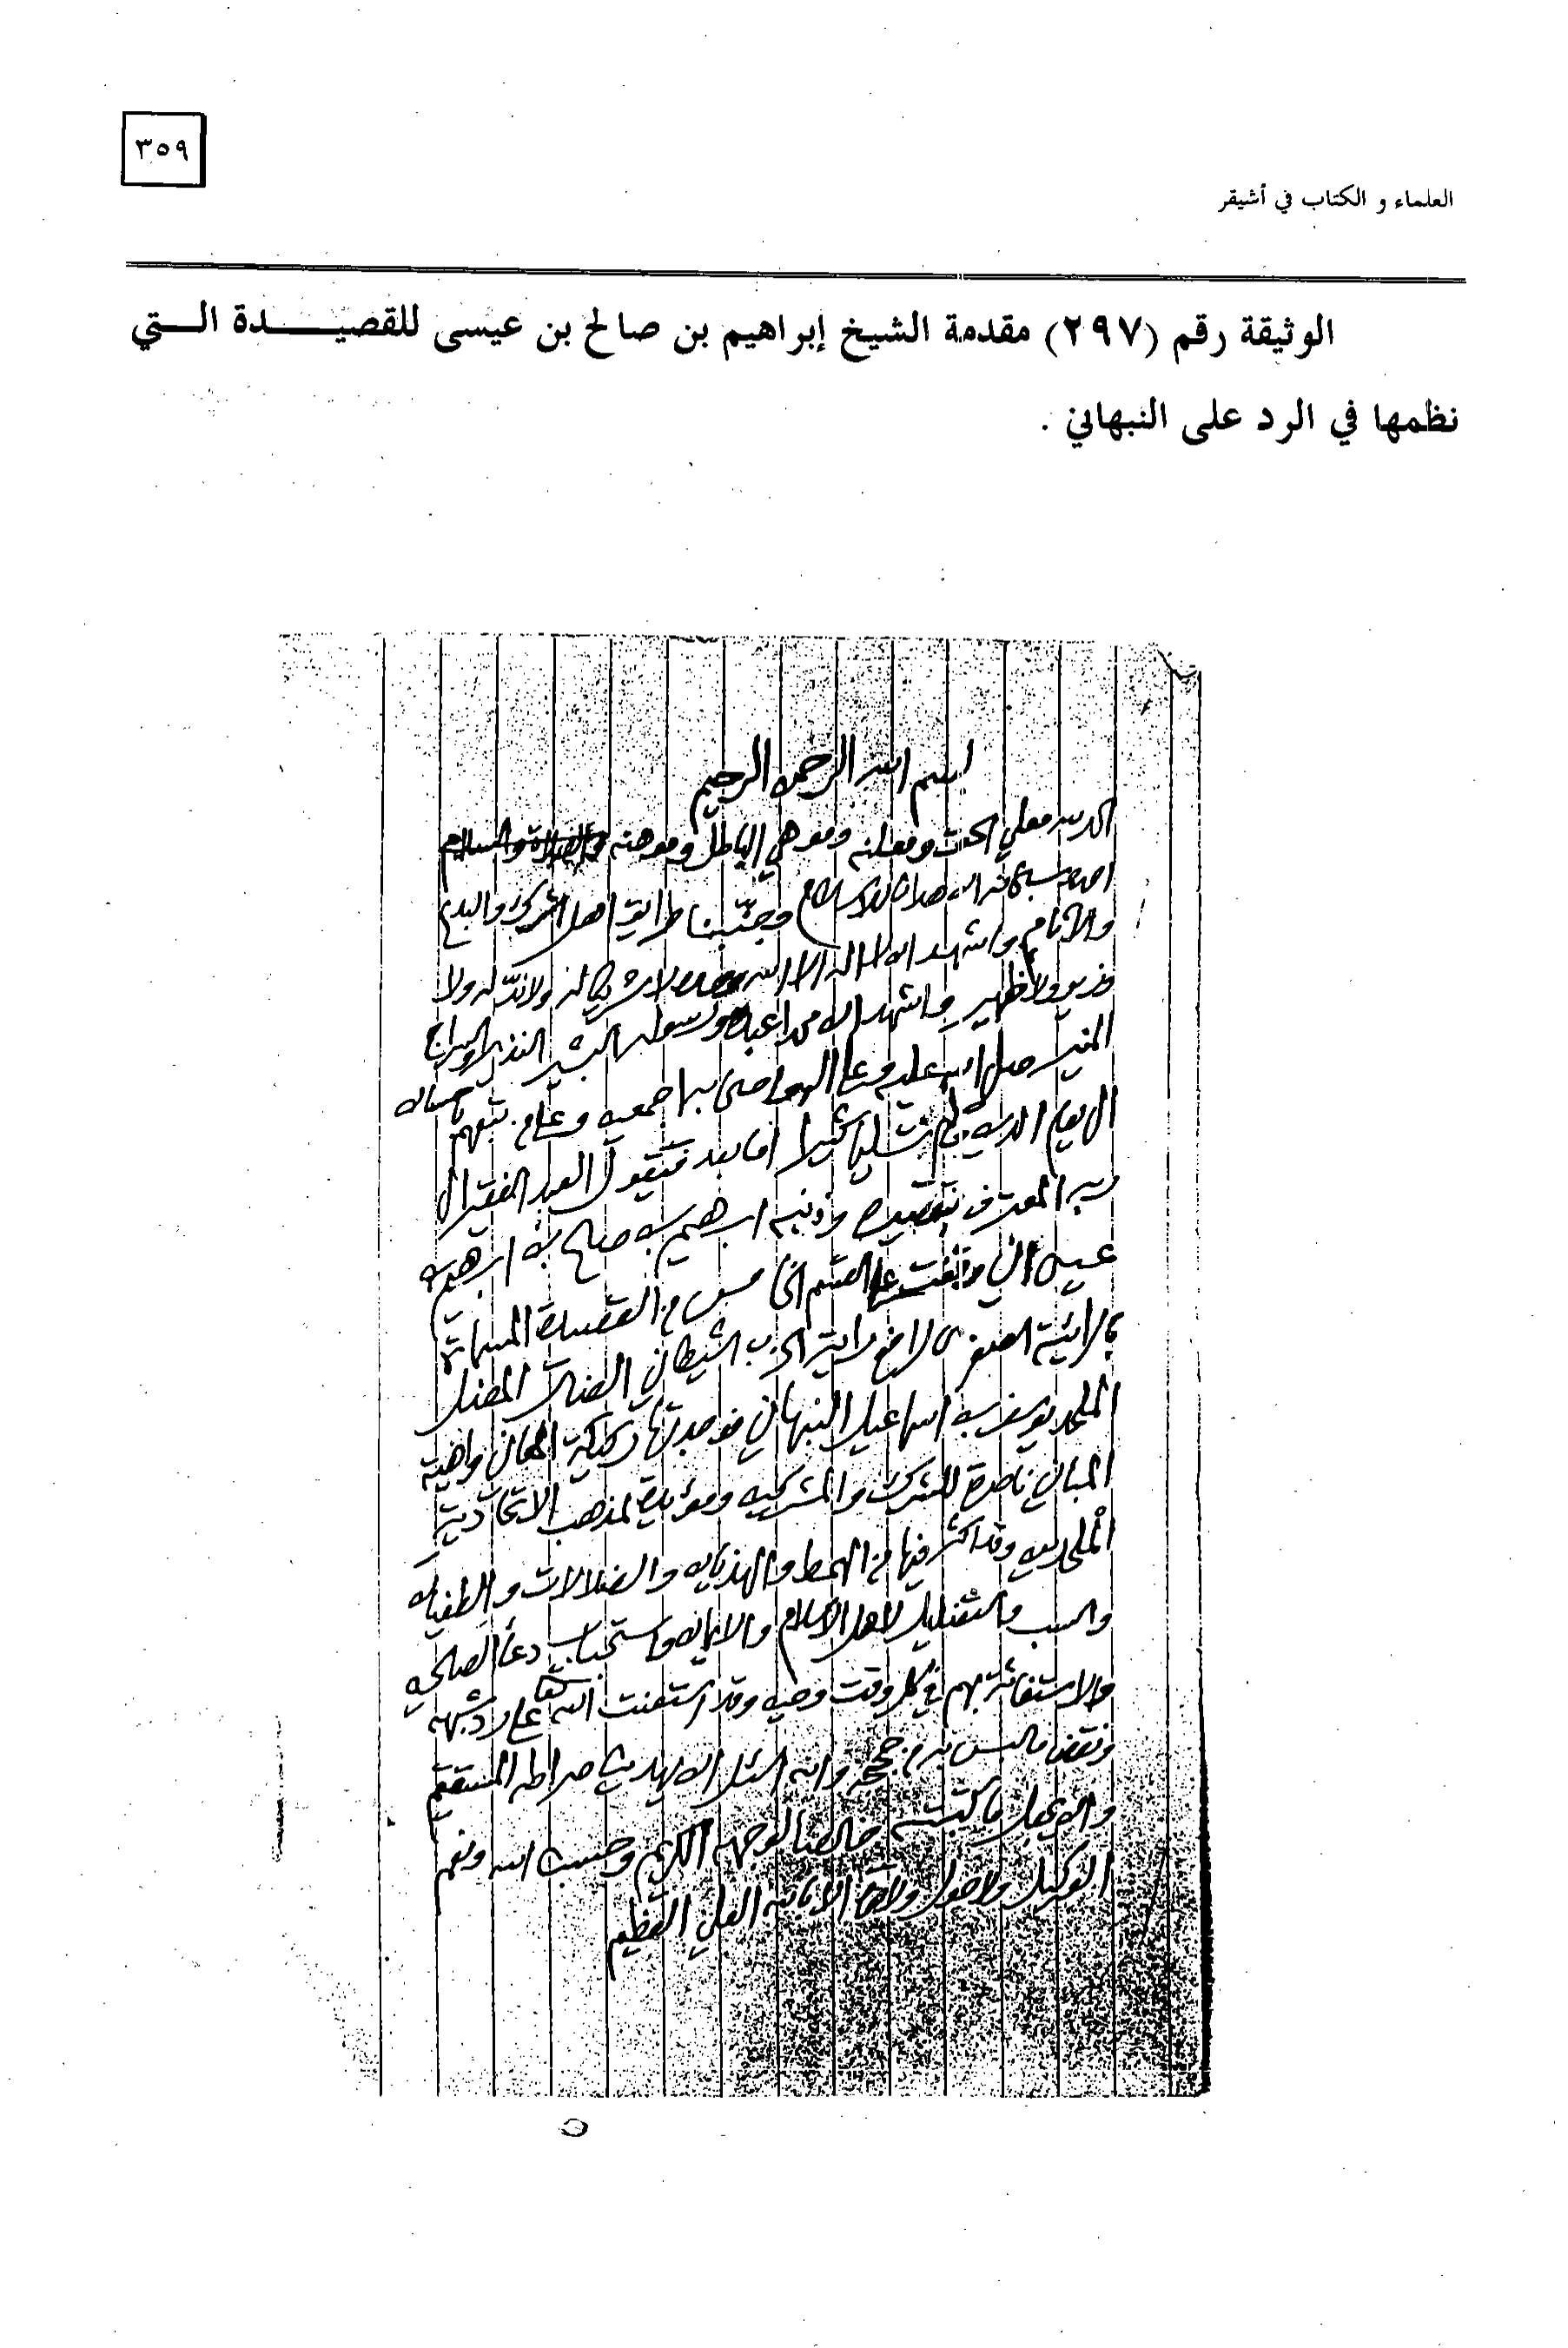 ٣٥٩
العلماء و الكتاب في أشيقر
الوثيقة رقم (٢٩٧) مقدمة الشيخ إبراهيم بن صالح بن عيسى للقصيدة التي
نظمها في الرد على النبهاني .
بسم الله الرحمن الرحيم
الحمد لله معلي الحق ومعلنه وموهي الباطل وموهنه والصلاة والسلام
احمده سبحانه ان هدانا للاسلام وجنبنا طرايق اهل الشرك والبدع
والآثام واشهد ان لا اله الا الله وحده لا شريك له ولا ند له ولا
وزير ولا ظهير واشهد ان محمدا عبده ورسوله البشير النذير والسراج
المنير صلى الله عليه وعلى اله واصحابه اجمعين وعلى من تبعهم باحسان
الى يوم الدين وسلم تسليما كثيرا اما بعد فيقول العبد الفقير الى
ربه المعترف بتقصيره وذنبه ابرهيم بن صالح بن ابرهيم بن
عيسى اني وقفت على القسم الخامس من القصيدة المسماة
بالرائية الصغرى لرافع راية الحزب الشيطاني الضال المضل
الملحد يوسف بن اسماعيل النبهاني فوجدتها ركيكة المعاني واهية
المباني ناصرة للشرك والمشركين ومؤيدة لمذهب الاتحادية
الملحدين وقد اكثر فيها من الهمط والهذيان والضلالات والطغيان
والسب والتضليل لاهل الاسلام والايمان واستحباب دعاء الصالحين
والاستغاثة بهم في كل وقت وحين وقد استعنت الله تعالى على رد شبهه
ونقض ما لبس به من حججه والله اسئل ان يهدينا صراطه المستقيم
وان يجعل ما كتبته خالصا لوجهه الكريم وحسبنا الله ونعم
الوكيل ولا حول ولا قوة الا بالله العلي العظيم